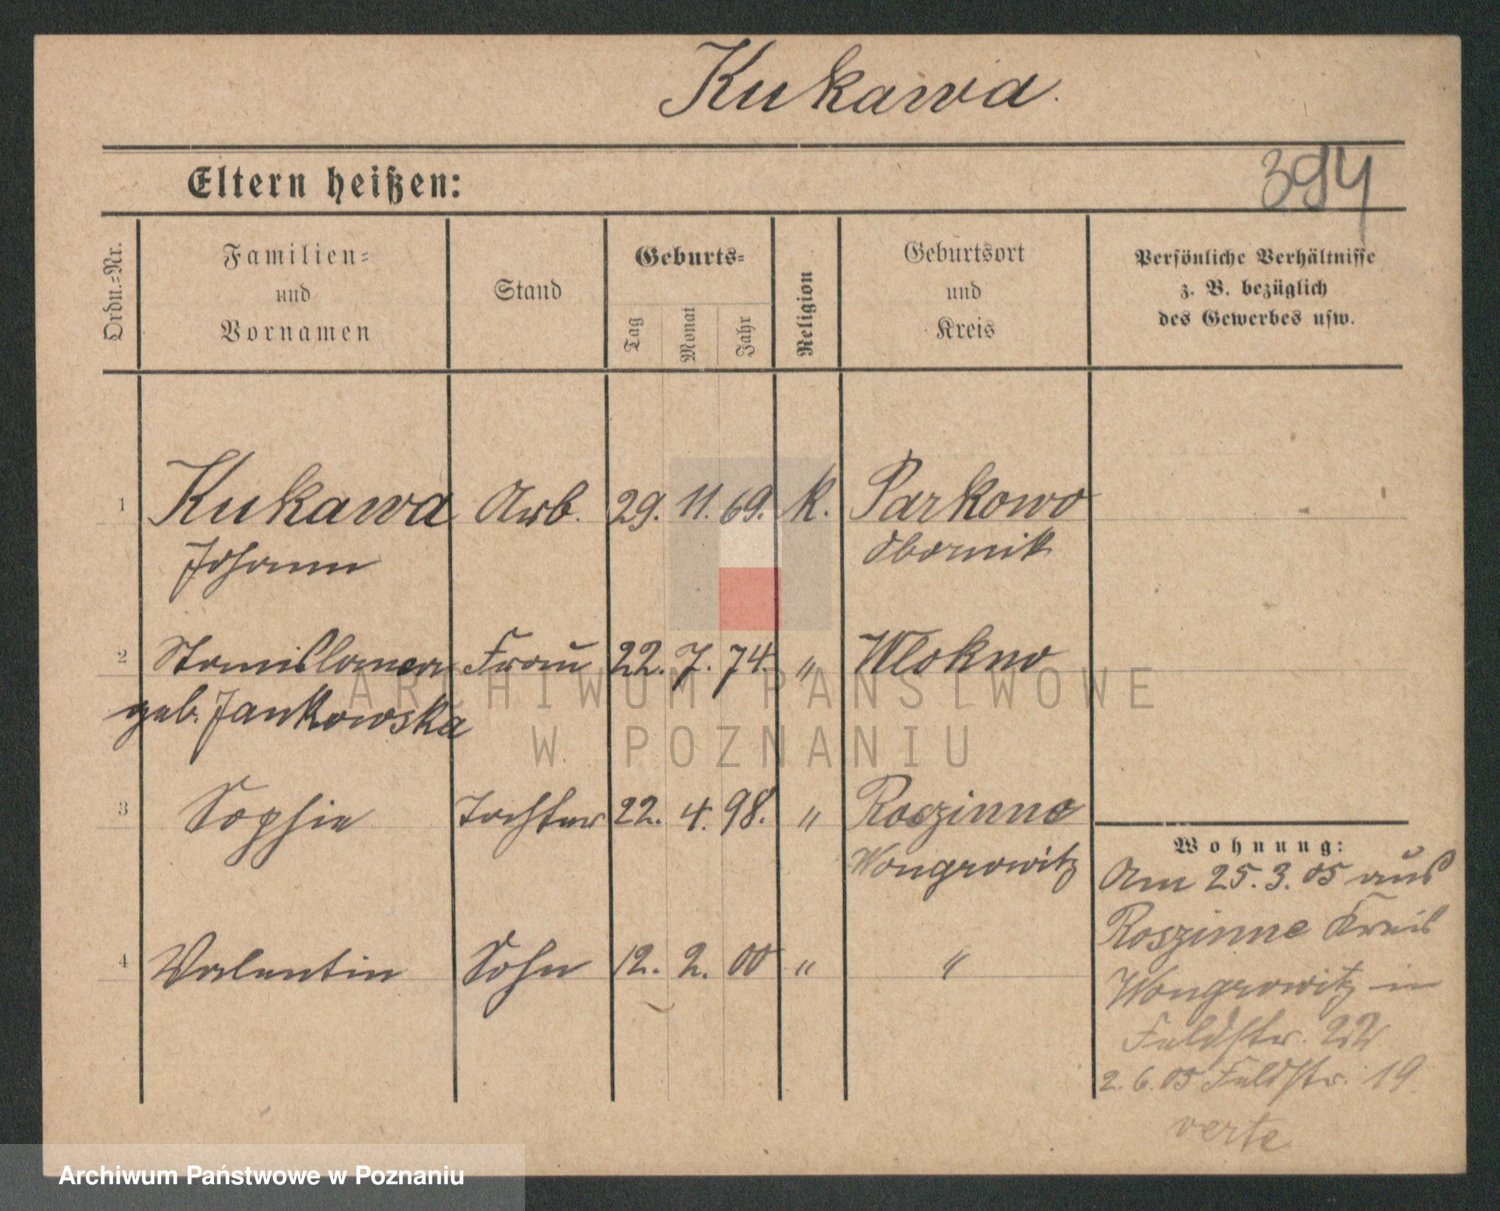 Kukawa.
Eltern heißen:
394
Ordn.=Nr.
Familien=
und
Vornamen
Stand
Geburts=
Tag
Monat
Jahr
Religion
Geburtsort
und
Kreis
Persönliche Verhältnisse
z. B. bezüglich
des Gewerbes usw.
1 Kukawa Arb. 29. 11. 69. k. Parkowo
Johann Obornik
2 Stanislawa Frau 22. 7. 74. " Wlokno
geb. Jankowska
3 Sophie Tochter 22. 4. 98. " Roszinno
Wongrowitz
4 Valentin Sohn 12. 2. 00 " "
Wohnung:
Am 25. 3. 05 aus
Roszinno Kreis
Wongrowitz in
Feldstr. 22
2. 6. 05 Feldstr. 19.
verte
ARCHIWUM PAŃSTWOWE
W POZNANIU
Archiwum Państwowe w Poznaniu